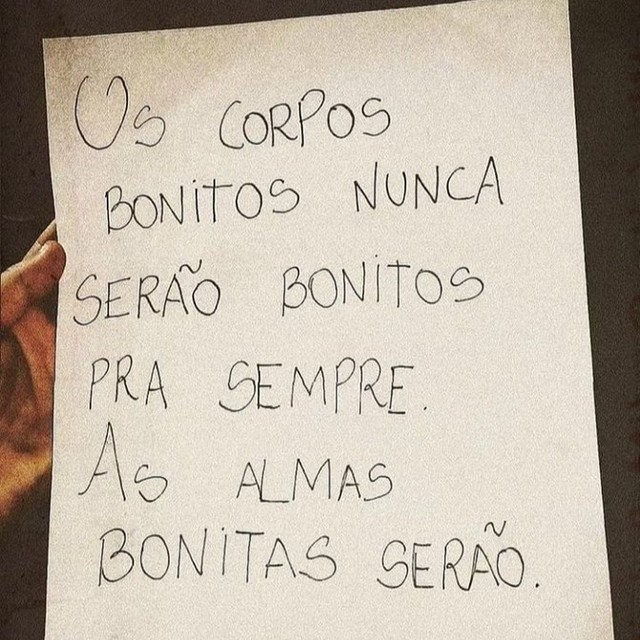 Os CORPOS
BONiTOS NUNCA
SERÃO BONiTOS
PRA SEMPRE.
As ALMAS
BONiTAS SERÃO.